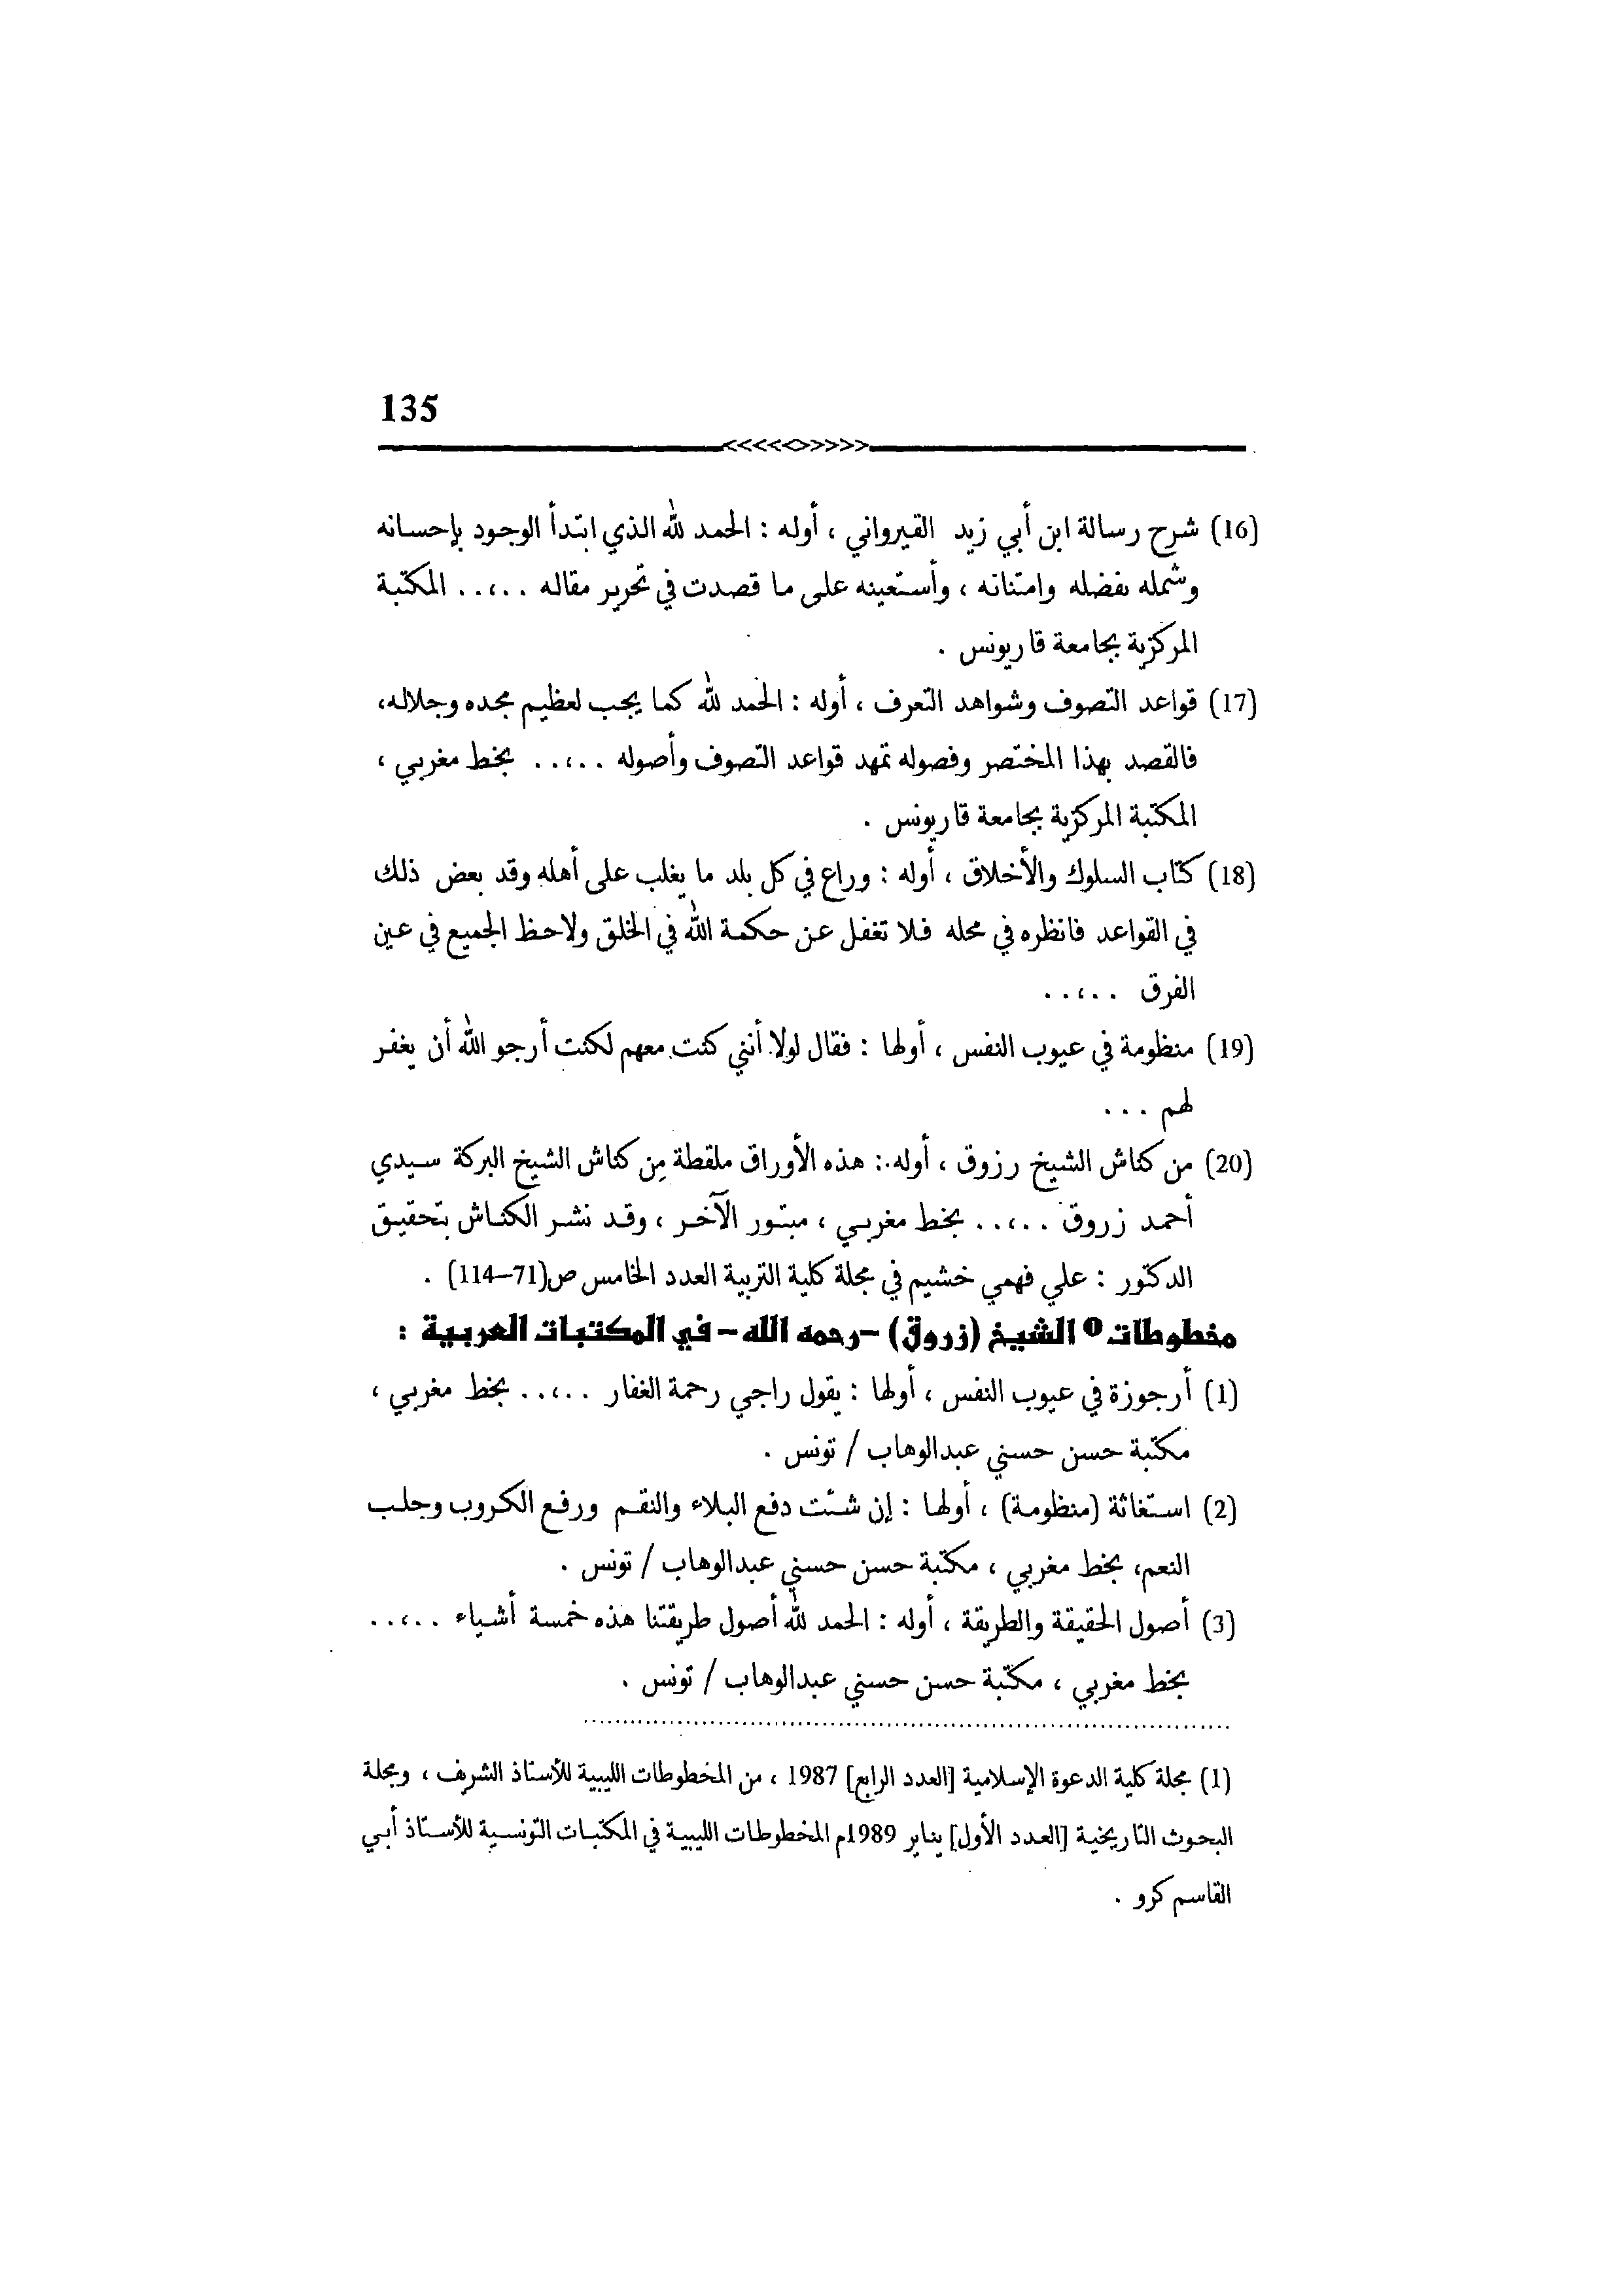 135
(16) شرح رسالة ابن أبي زيد القيرواني ، أوله : الحمد لله الذي ابتدأ الوجود بإحسانه
وشمله بفضله وامتنانه ، وأستعينه على ما قصدت في تحرير مقاله ..،.. المكتبة
المركزية بجامعة قاريونس .
(17) قواعد التصوف وشواهد التعرف ، أوله : الحمد لله كما يجب لعظيم مجده وجلاله،
فالقصد بهذا المختصر وفصوله تمهد قواعد التصوف وأصوله ..،.. بخط مغربي ،
المكتبة المركزية بجامعة قاريونس .
(18) كتاب السلوك والأخلاق ، أوله : وراع في كل بلد ما يغلب على أهله وقد بعض ذلك
في القواعد فانظره في محله فلا تغفل عن حكمة الله في الخلق ولاحظ الجميع في عين
الفرق ..،..
(19) منظومة في عيوب النفس ، أولها : فقال لولا أنني كنت معهم لكنت أرجو الله أن يغفر
لهم ...
(20) من كناش الشيخ رزوق ، أوله : هذه الأوراق ملقطة مِن كناش الشيخ البركة سيدي
أحمد زروق ..،.. بخط مغربي ، مبتور الآخر ، وقد نشر الكناش بتحقيق
الدكتور : علي فهمي خشيم في مجلة كلية التربية العدد الخامس ص(71–114) .
مخطوطات❶ الشيخ (زروق) –رحمه الله– في المكتبات العربية :
(1) أرجوزة في عيوب النفس ، أولها : يقول راجي رحمة الغفار ..،.. بخط مغربي ،
مكتبة حسن حسني عبدالوهاب / تونس .
(2) استغاثة (منظومة) ، أولها : إن شئت دفع البلاء والنقم ورفع الكروب وجلب
النعم، بخط مغربي ، مكتبة حسن حسني عبدالوهاب / تونس .
(3) أصول الحقيقة والطريقة ، أوله : الحمد لله أصول طريقتنا هذه خمسة أشياء ..،..
بخط مغربي ، مكتبة حسن حسني عبدالوهاب / تونس .
(1) مجلة كلية الدعوة الإسلامية [العدد الرابع] 1987 ، من المخطوطات الليبية للأستاذ الشريف ، ومجلة
البحوث التاريخية [العدد الأول] يناير 1989م المخطوطات الليبية في المكتبات التونسية للأستاذ أبي
القاسم كرو .